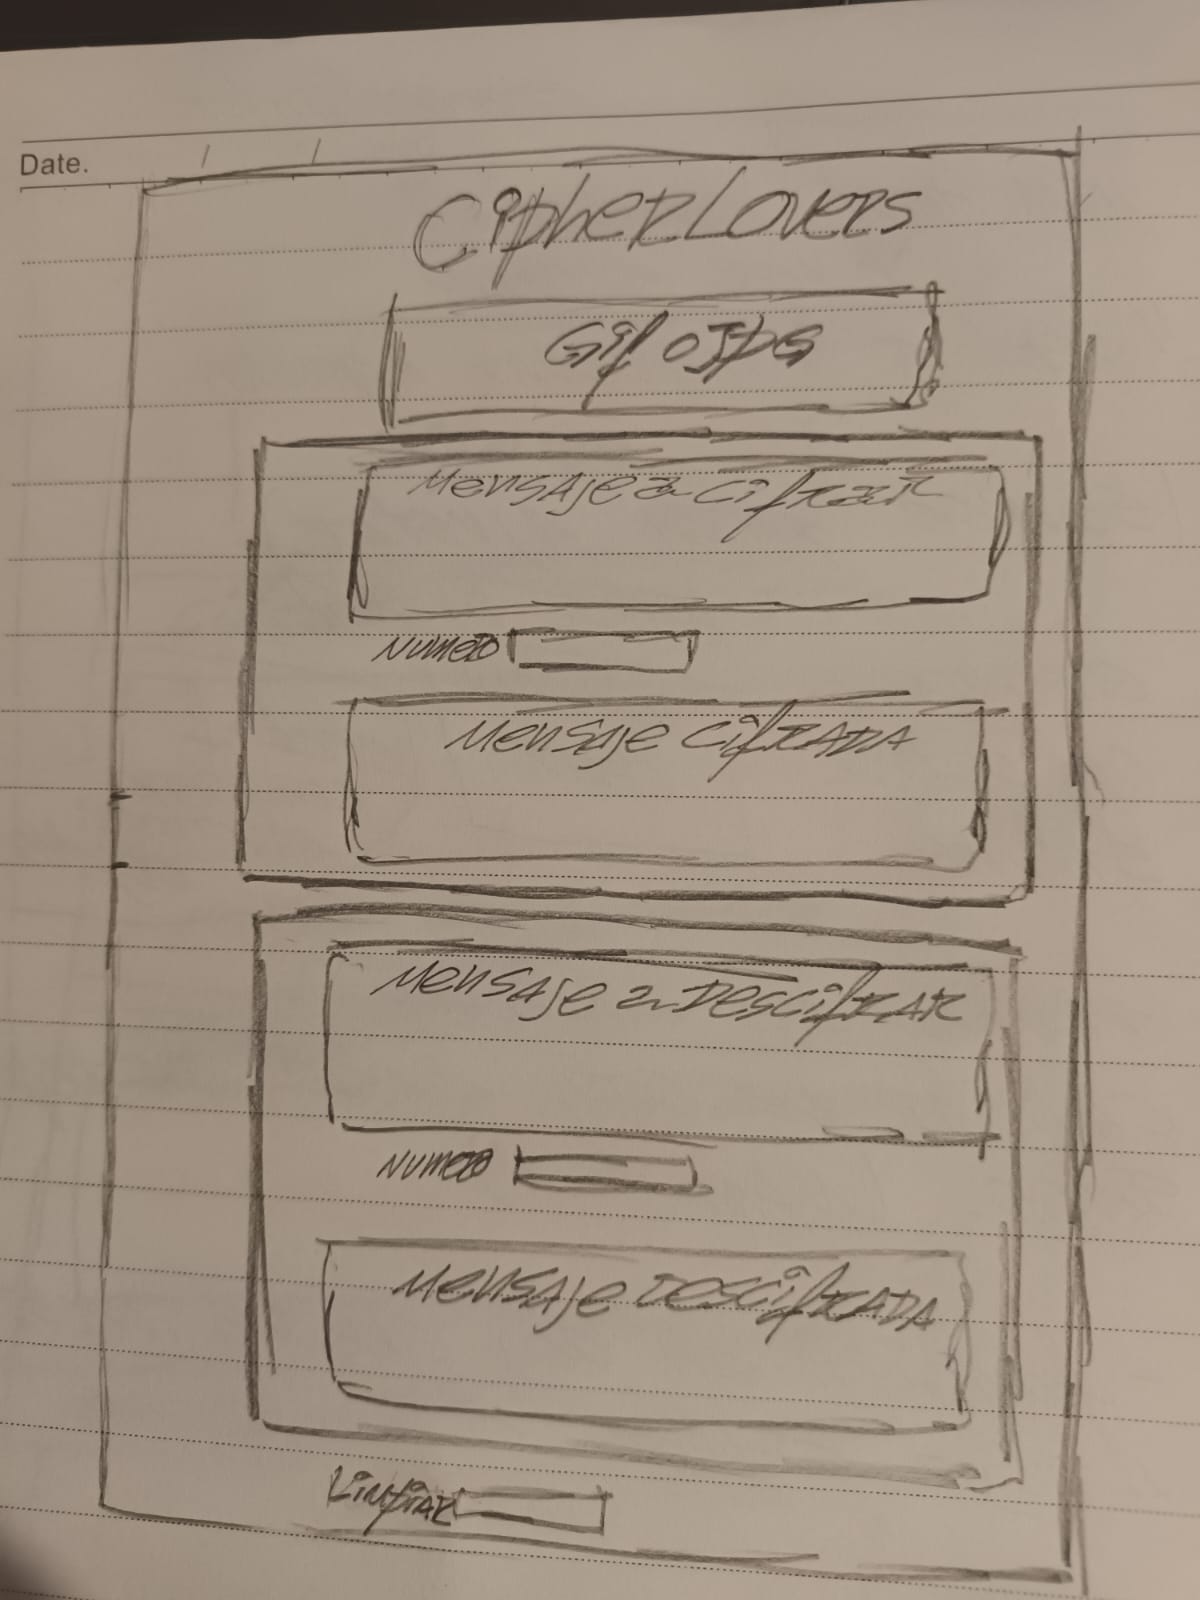 Date. / /
CipherLovers
Gif o JPG
Mensaje a Cifrar
Numero
Mensaje CifRADA
Mensaje a Descifrar
Numero
Mensaje DescifRADA
Limpiar